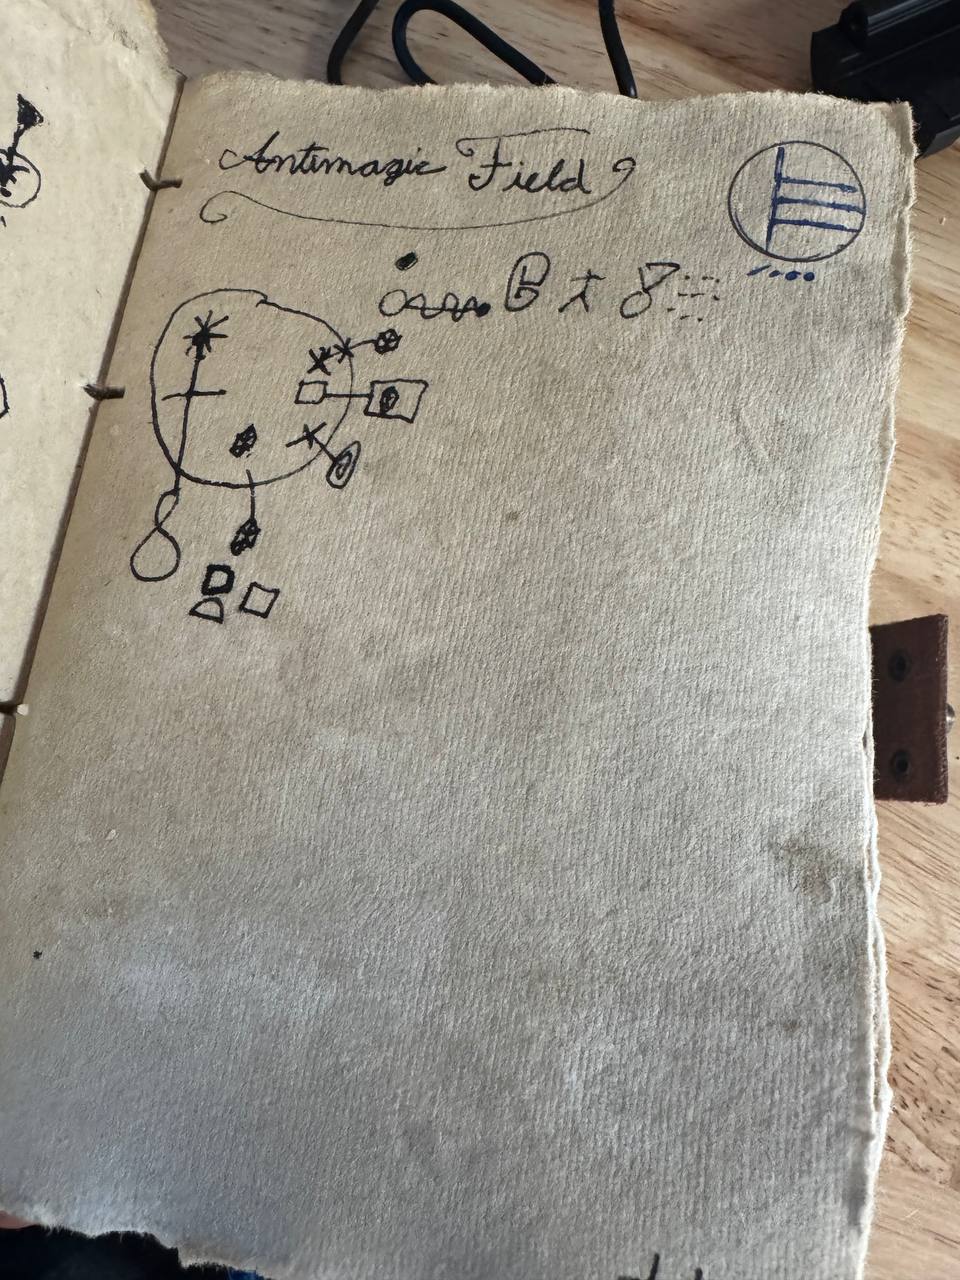 Antimagic Field